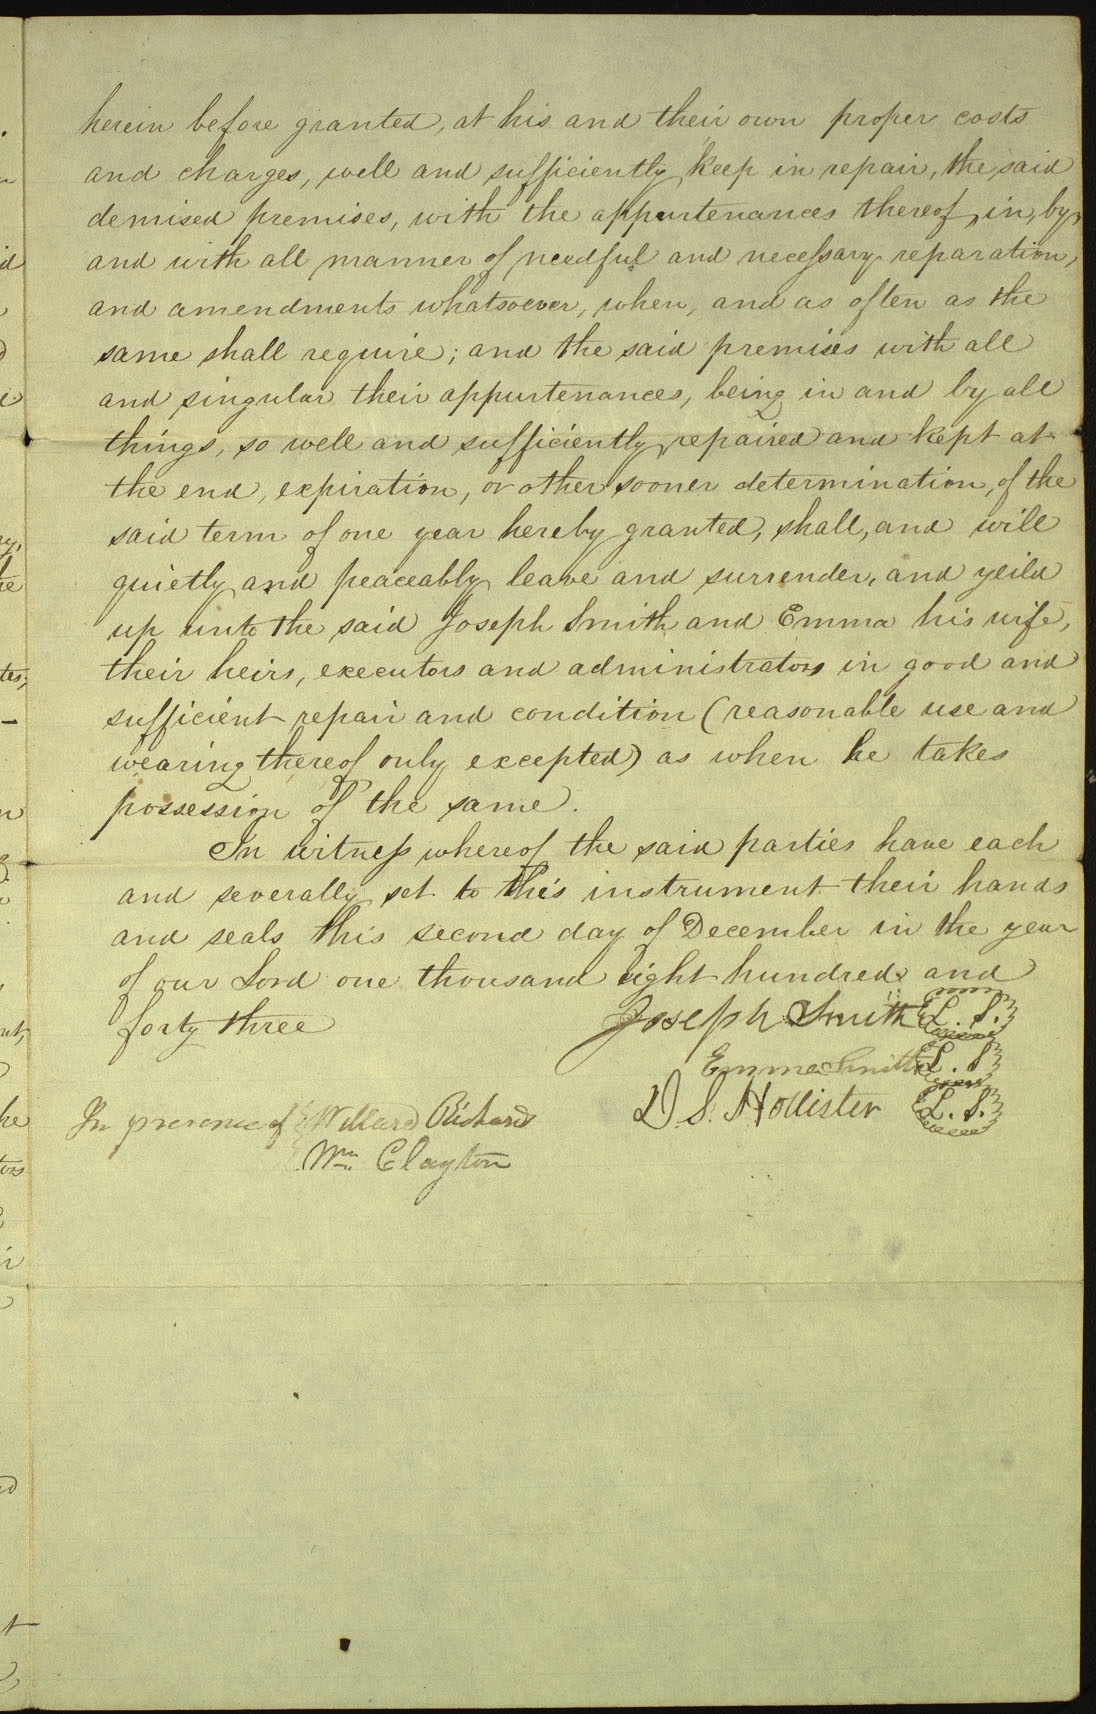 herein before granted, at his and their own proper costs
and charges, well and sufficiently keep in repair, the said
demised premises, with the appurtenances thereof, in, by,
and with all manner of needful and necessary reparation,
and amendments whatsoever, when, and as often as the
same shall require; and the said premises with all
and singular their appurtenances, being in and by all
things, so well and sufficiently repaired and kept at
the end, expiration, or other sooner determination, of the
said term of one year hereby granted, shall, and will
quietly and peaceably leave and surrender, and yeild
up unto the said Joseph Smith and Emma his wife,
their heirs, executors and administrators in good and
sufficient repair and condition (reasonable use and
wearing thereof only excepted) as when he takes
possession of the same.
In witness whereof the said parties have each
and severally set to this instrument their hands
and seals this second day of December in the year
of our Lord one thousand eight hundred and
forty three
Joseph Smith L. S.
Emma Smith L. S
D. S. Hollister L. S.
In presence of Willard Richards
Wm. Clayton